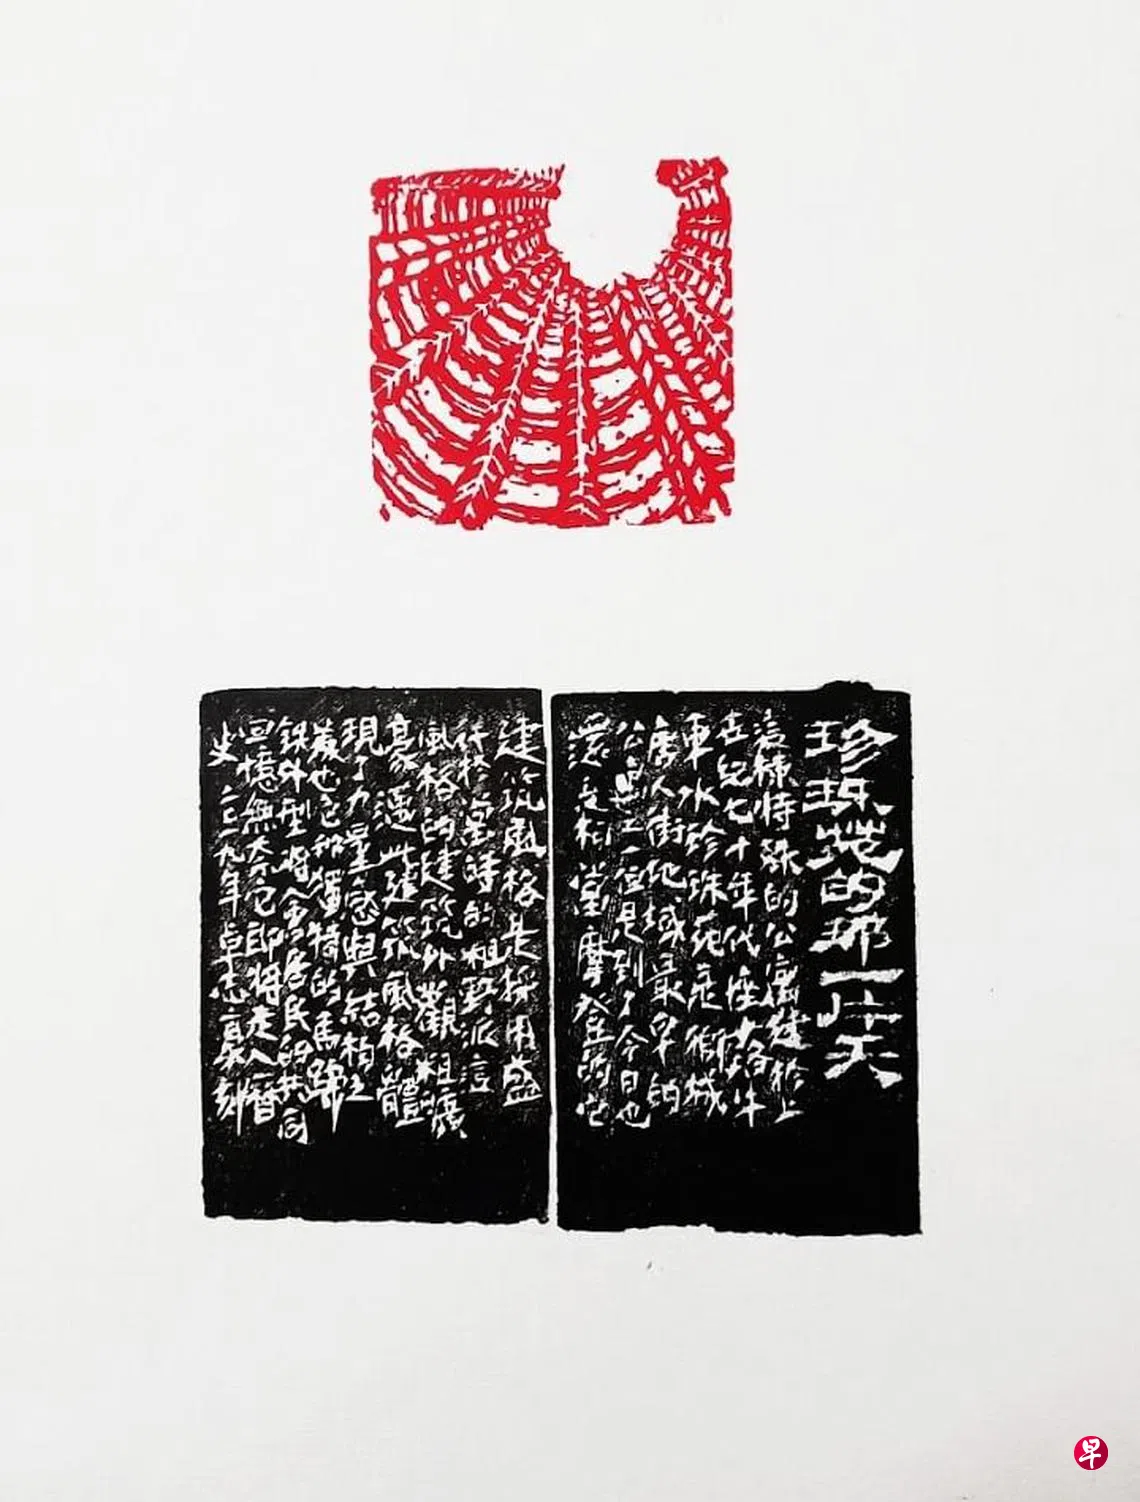 珍珠苑的那一片天
這棟特殊的公寓建於上
世紀七十年代座落牛
車水珍珠苑是獅城
唐人街地域最早的
公寓一直是到了今日也
還是相當摩登的它
建筑風格是採用盛
行於當時的粗野派這
風格的建筑外觀粗獷
豪邁此建筑風格體
現了力量感與結構之
美也它那獨特的馬蹄
鉄外型將令居民的共同
回憶無奈它即將走入曆
史二〇一九年卓志嘉刻
早